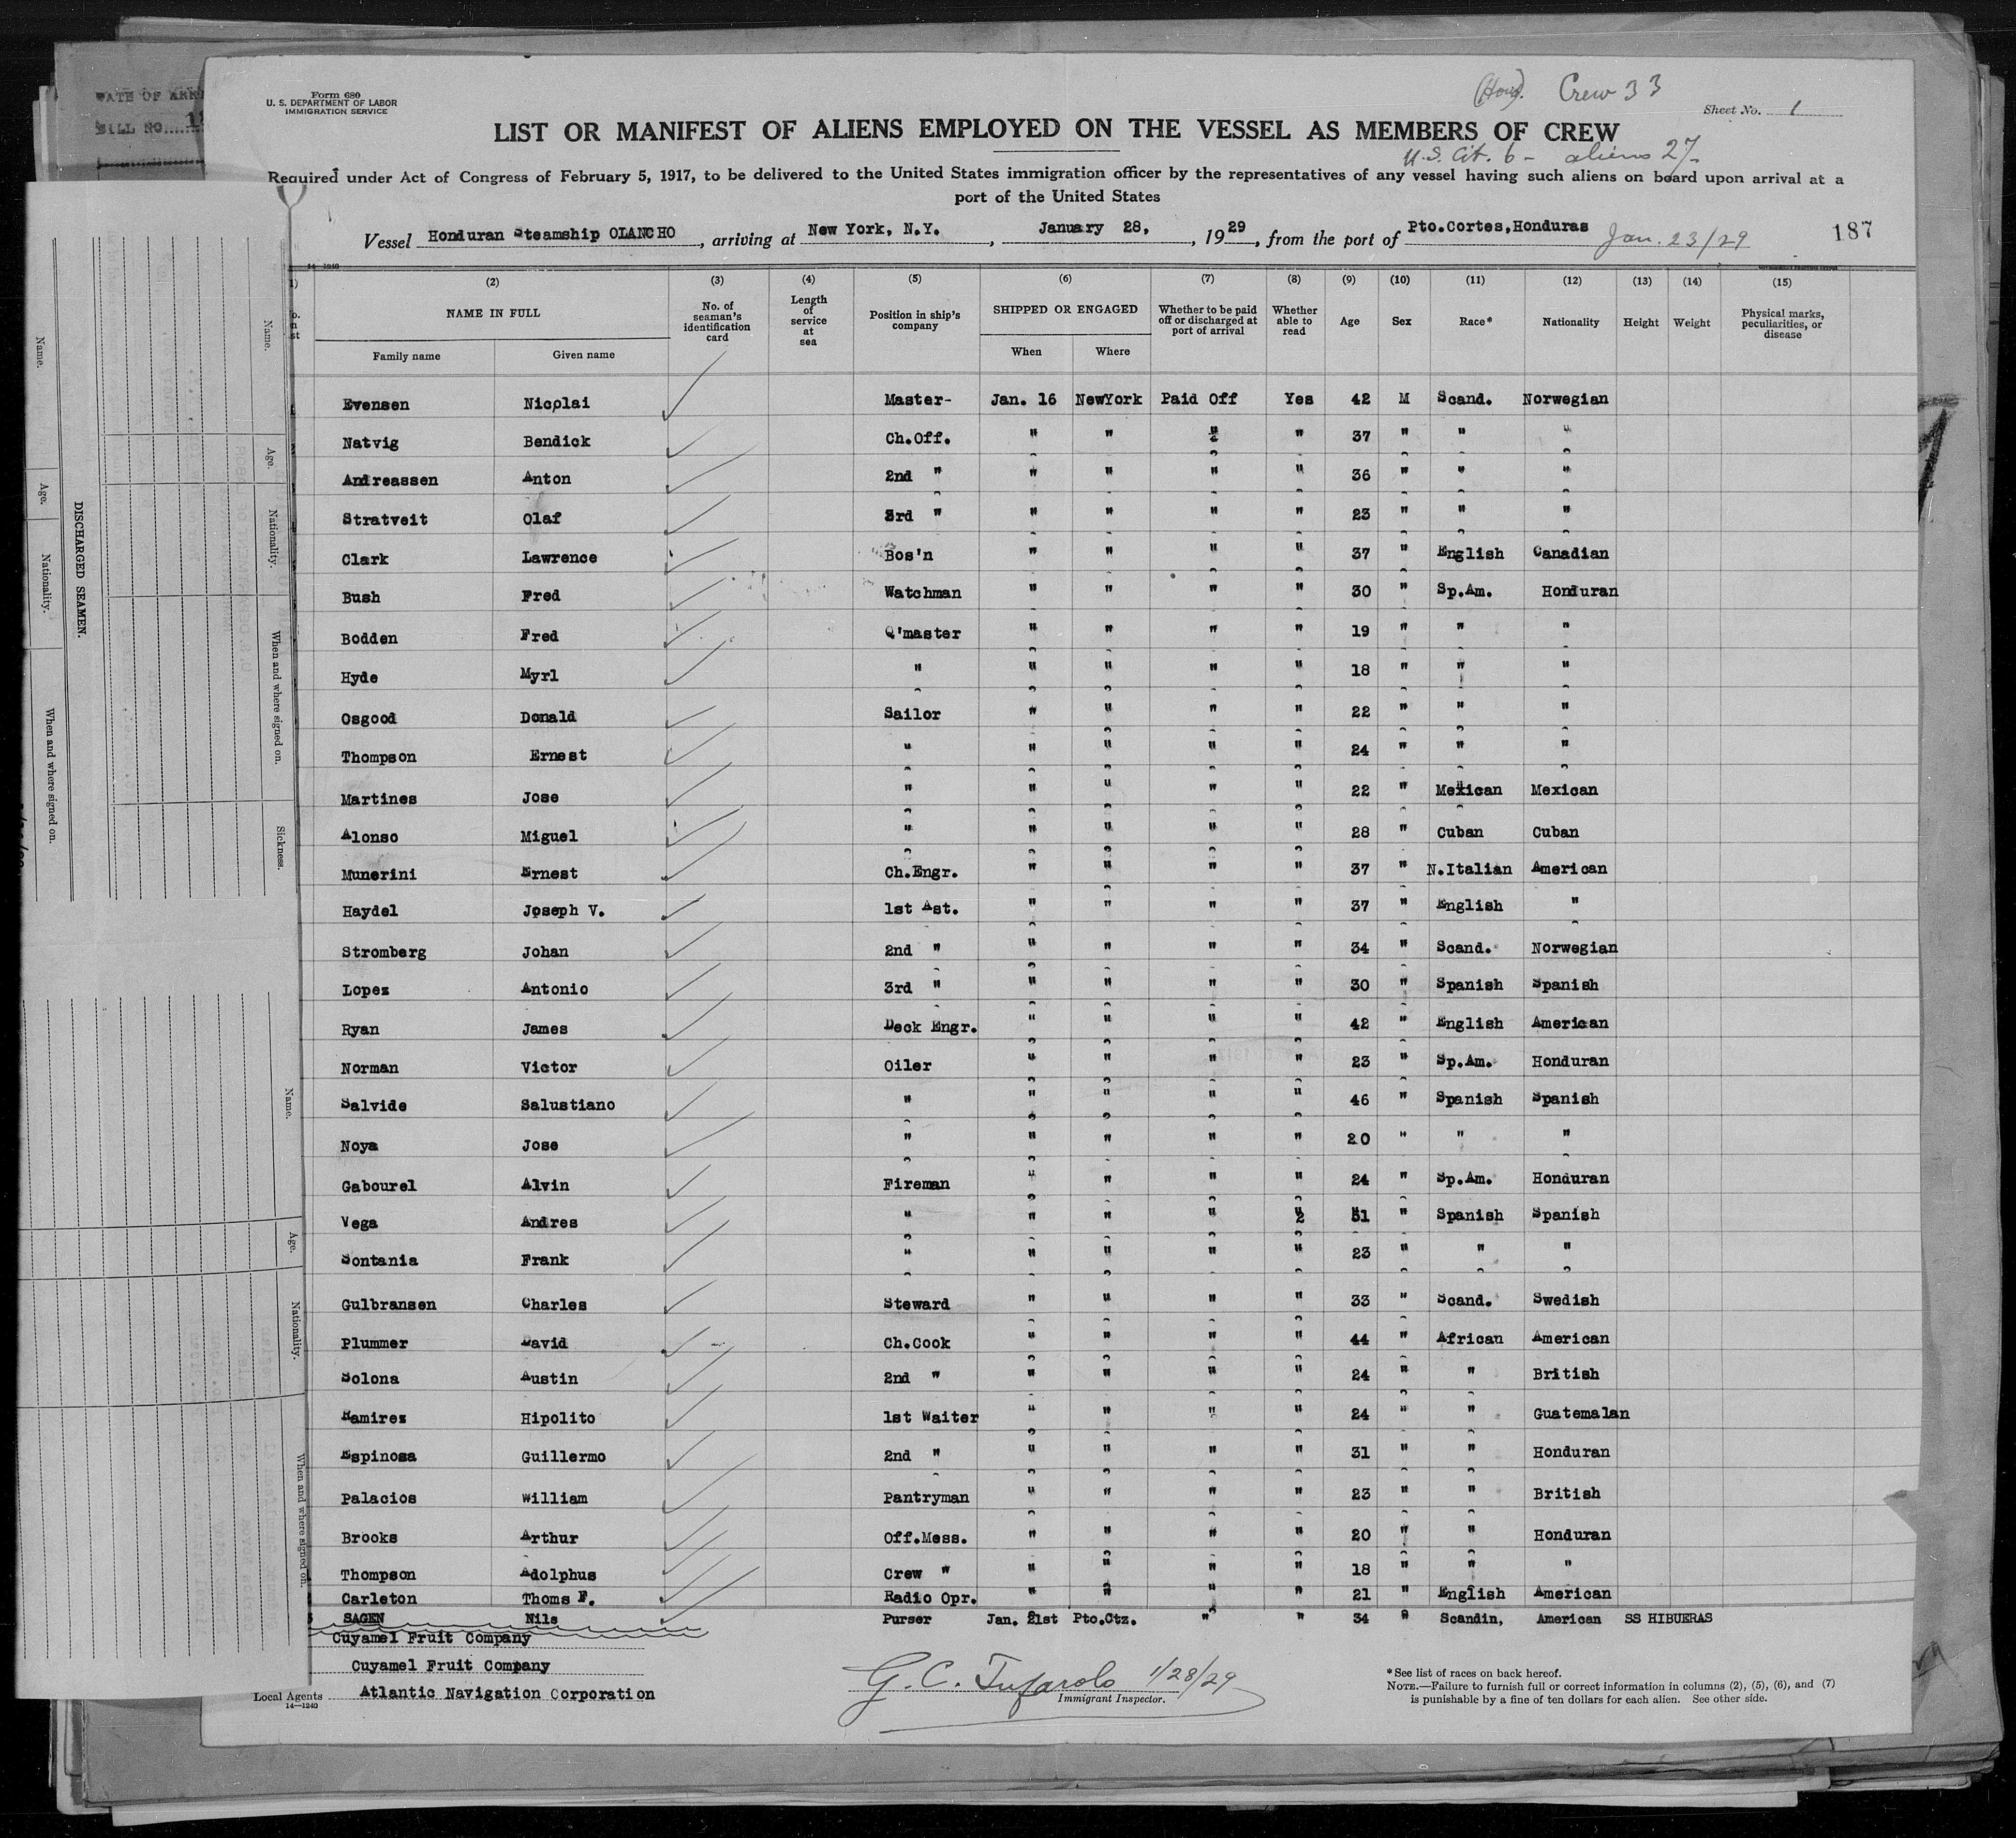 (Hond). Crew 33
Form 680
U. S. DEPARTMENT OF LABOR
IMMIGRATION SERVICE
Sheet No. 1
LIST OR MANIFEST OF ALIENS EMPLOYED ON THE VESSEL AS MEMBERS OF CREW
U.S. Cit. 6 - aliens 27
Required under Act of Congress of February 5, 1917, to be delivered to the United States immigration officer by the representatives of any vessel having such aliens on board upon arrival at a
port of the United States
Vessel Honduran Steamship OLANCHO, arriving at New York, N.Y., January 28, 1929, from the port of Pto.Cortes,Honduras Jan. 23/29 187
(2) (3) (4) (5) (6) (7) (8) (9) (10) (11) (12) (13) (14) (15)
NAME IN FULL No. of seaman's identification card Length of service at sea Position in ship's company SHIPPED OR ENGAGED Whether to be paid off or discharged at port of arrival Whether able to read Age Sex Race* Nationality Height Weight Physical marks, peculiarities, or disease
Family name Given name When Where
Evensen Nicolai Master- Jan. 16 NewYork Paid Off Yes 42 M Scand. Norwegian
Natvig Bendick Ch.Off. " " " " 37 " " "
Andreassen Anton 2nd " " " " " 36 " " "
Stratveit Olaf 3rd " " " " " 23 " " "
Clark Lawrence Bos'n " " " " 37 " English Canadian
Bush Fred Watchman " " " " 30 " Sp.Am. Honduran
Bodden Fred Q'master " " " " 19 " " "
Hyde Myrl " " " " " 18 " " "
Osgood Donald Sailor " " " " 22 " " "
Thompson Ernest " " " " " 24 " " "
Martines Jose " " " " " 22 " Mexican Mexican
Alonso Miguel " " " " " 28 " Cuban Cuban
Munerini Ernest Ch.Engr. " " " " 37 " N.Italian American
Haydel Joseph V. 1st Ast. " " " " 37 " English "
Stromberg Johan 2nd " " " " " 34 " Scand. Norwegian
Lopez Antonio 3rd " " " " " 30 " Spanish Spanish
Ryan James Deck Engr. " " " " 42 " English American
Norman Victor Oiler " " " " 23 " Sp.Am. Honduran
Salvide Salustiano " " " " " 46 " Spanish Spanish
Noya Jose " " " " " 20 " " "
Gabourel Alvin Fireman " " " " 24 " Sp.Am. Honduran
Vega Andres " " " " " 31 " Spanish Spanish
Sontania Frank " " " " " 23 " " "
Gulbransen Charles Steward " " " " 33 " Scand. Swedish
Plummer David Ch.Cook " " " " 44 " African American
Solona Austin 2nd " " " " " 24 " " British
Ramirez Hipolito 1st Waiter " " " " 24 " " Guatemalan
Espinosa Guillermo 2nd " " " " " 31 " " Honduran
Palacios William Pantryman " " " " 23 " " British
Brooks Arthur Off.Mess. " " " " 20 " " Honduran
Thompson Adolphus Crew " " " " " 18 " " "
Carleton Thoms F. Radio Opr. " " " " 21 " English American
SAGEN Nils Purser Jan. 21st Pto.Ctz. " " 34 " Scandin, American SS HIBUERAS
Cuyamel Fruit Company
Cuyamel Fruit Company
Local Agents Atlantic Navigation Corporation
14—1240
G. C. Tufarolo 1/28/29
Immigrant Inspector.
*See list of races on back hereof.
NOTE.—Failure to furnish full or correct information in columns (2), (5), (6), and (7)
is punishable by a fine of ten dollars for each alien. See other side.
DISCHARGED SEAMEN.
Name.
Age.
Nationality.
When and where signed on.
Name.
Age.
Nationality.
When and where signed on.
Sickness.
Name.
Age.
Nationality.
When and where signed on.
BILL NO.